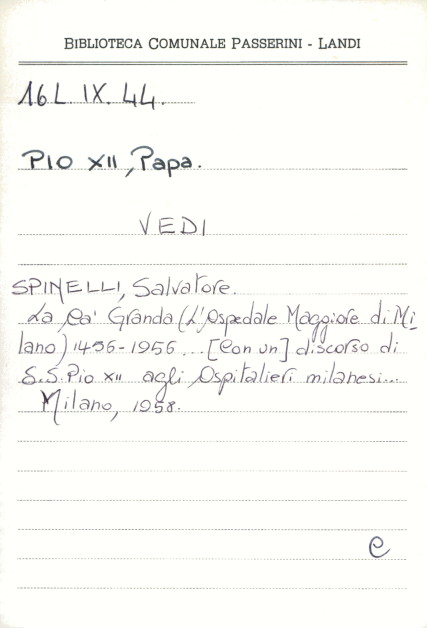 BIBLIOTECA COMUNALE PASSERINI - LANDI
16L. IX. 44.
PIO XII, Papa.
VEDI
SPINELLI, Salvatore.
La Ca' Granda (L'Ospedale Maggiore di Mi
lano) 1456-1956... [Con un] discorso di
S.S. Pio XII agli Ospitalieri milanesi...
Milano, 1958.
C